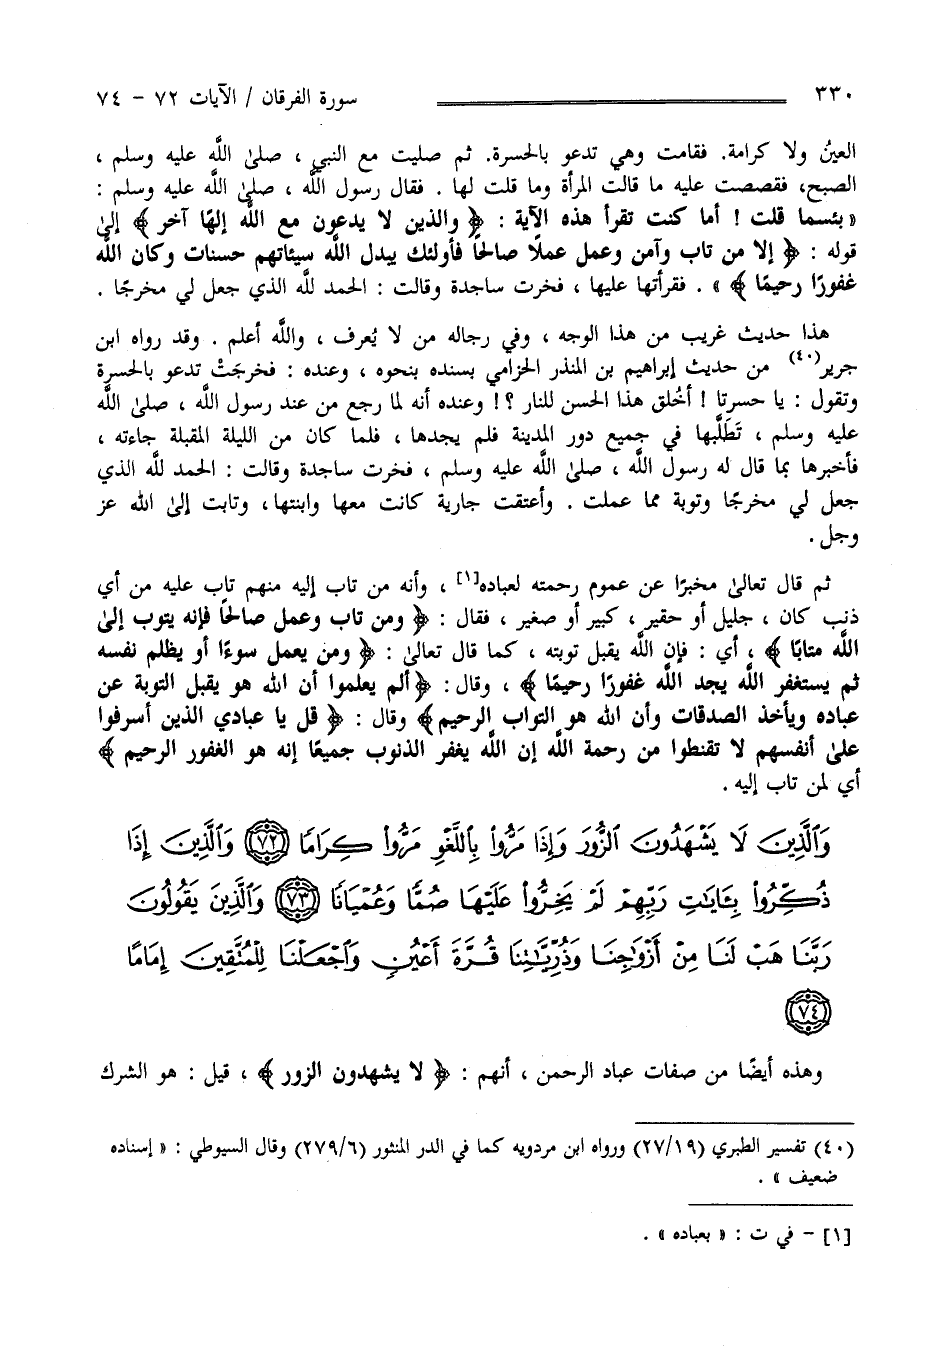 ٣٣٠ سورة الفرقان / الآيات ٧٢ - ٧٤
العينُ ولا كرامة. فقامت وهي تدعو بالحسرة. ثم صليت مع النبي ، صلىٰ اللَّه عليه وسلم ،
الصبح، فقصصت عليه ما قالت المرأة وما قلت لها . فقال رسول اللَّه ، صلىٰ اللَّه عليه وسلم :
« بئسما قلت ! أما كنت تقرأ هذه الآية : ﴿ والذين لا يدعون مع اللَّه إلهًا آخر ﴾ إلىٰ
قوله : ﴿ إلا من تاب وآمن وعمل عملًا صالحًا فأولئك يبدل اللَّه سيئاتهم حسنات وكان اللَّه
غفورًا رحيمًا ﴾ » . فقرأتها عليها ، فخرت ساجدة وقالت : الحمد للَّه الذي جعل لي مخرجًا .
هذا حديث غريب من هذا الوجه ، وفي رجاله من لا يُعرف ، واللَّه أعلم . وقد رواه ابن
جرير(٤٠) من حديث إبراهيم بن المنذر الحزامي بسنده بنحوه ، وعنده : فخرجَتْ تدعو بالحسرة
وتقول : يا حسرتا ! أخُلق هذا الحسن للنار ؟! وعنده أنه لما رجع من عند رسول اللَّه ، صلىٰ اللَّه
عليه وسلم ، تَطَلَّبها في جميع دور المدينة فلم يجدها ، فلما كان من الليلة المقبلة جاءته ،
فأخبرها بما قال له رسول اللَّه ، صلىٰ اللَّه عليه وسلم ، فخرت ساجدة وقالت : الحمد للَّه الذي
جعل لي مخرجًا وتوبة مما عملت . وأعتقت جارية كانت معها وابنتها، وتابت إلىٰ الله عز
وجل .
ثم قال تعالىٰ مخبرًا عن عموم رحمته لعباده[١] ، وأنه من تاب إليه منهم تاب عليه من أي
ذنب كان ، جليل أو حقير ، كبير أو صغير ، فقال : ﴿ ومن تاب وعمل صالحًا فإنه يتوب إلىٰ
اللَّه متابًا ﴾ ، أي : فإن اللَّه يقبل توبته ، كما قال تعالىٰ : ﴿ ومن يعمل سوءًا أو يظلم نفسه
ثم يستغفر اللَّه يجد اللَّه غفورًا رحيمًا ﴾ ، وقال: ﴿ألم يعلموا أن الله هو يقبل التوبة عن
عباده ويأخذ الصدقات وأن الله هو التواب الرحيم﴾ وقال : ﴿ قل يا عبادي الذين أسرفوا
علىٰ أنفسهم لا تقنطوا من رحمة اللَّه إن اللَّه يغفر الذنوب جميعًا إنه هو الغفور الرحيم ﴾
أي لمن تاب إليه .
وَٱلَّذِينَ لَا يَشْهَدُونَ ٱلزُّورَ وَإِذَا مَرُّوا۟ بِٱللَّغْوِ مَرُّوا۟ كِرَامًا ٧٢ وَٱلَّذِينَ إِذَا
ذُكِّرُوا۟ بِـَٔايَٰتِ رَبِّهِمْ لَمْ يَخِرُّوا۟ عَلَيْهَا صُمًّا وَعُمْيَانًا ٧٣ وَٱلَّذِينَ يَقُولُونَ
رَبَّنَا هَبْ لَنَا مِنْ أَزْوَٰجِنَا وَذُرِّيَّٰتِنَا قُرَّةَ أَعْيُنٍ وَٱجْعَلْنَا لِلْمُتَّقِينَ إِمَامًا
٧٤
وهذه أيضًا من صفات عباد الرحمن ، أنهم : ﴿ لا يشهدون الزور ﴾ ، قيل : هو الشرك
(٤٠) تفسير الطبري (٢٧/١٩) ورواه ابن مردويه كما في الدر المنثور (٢٧٩/٦) وقال السيوطي : « إسناده
ضعيف » .
[١] - في ت : « بعباده » .